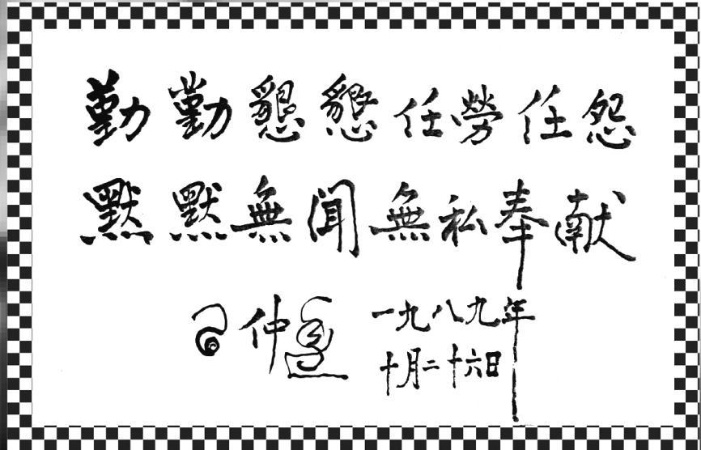 勤勤懇懇任勞任怨
默默無闻無私奉献
仲
一九八九年
十月二十六日